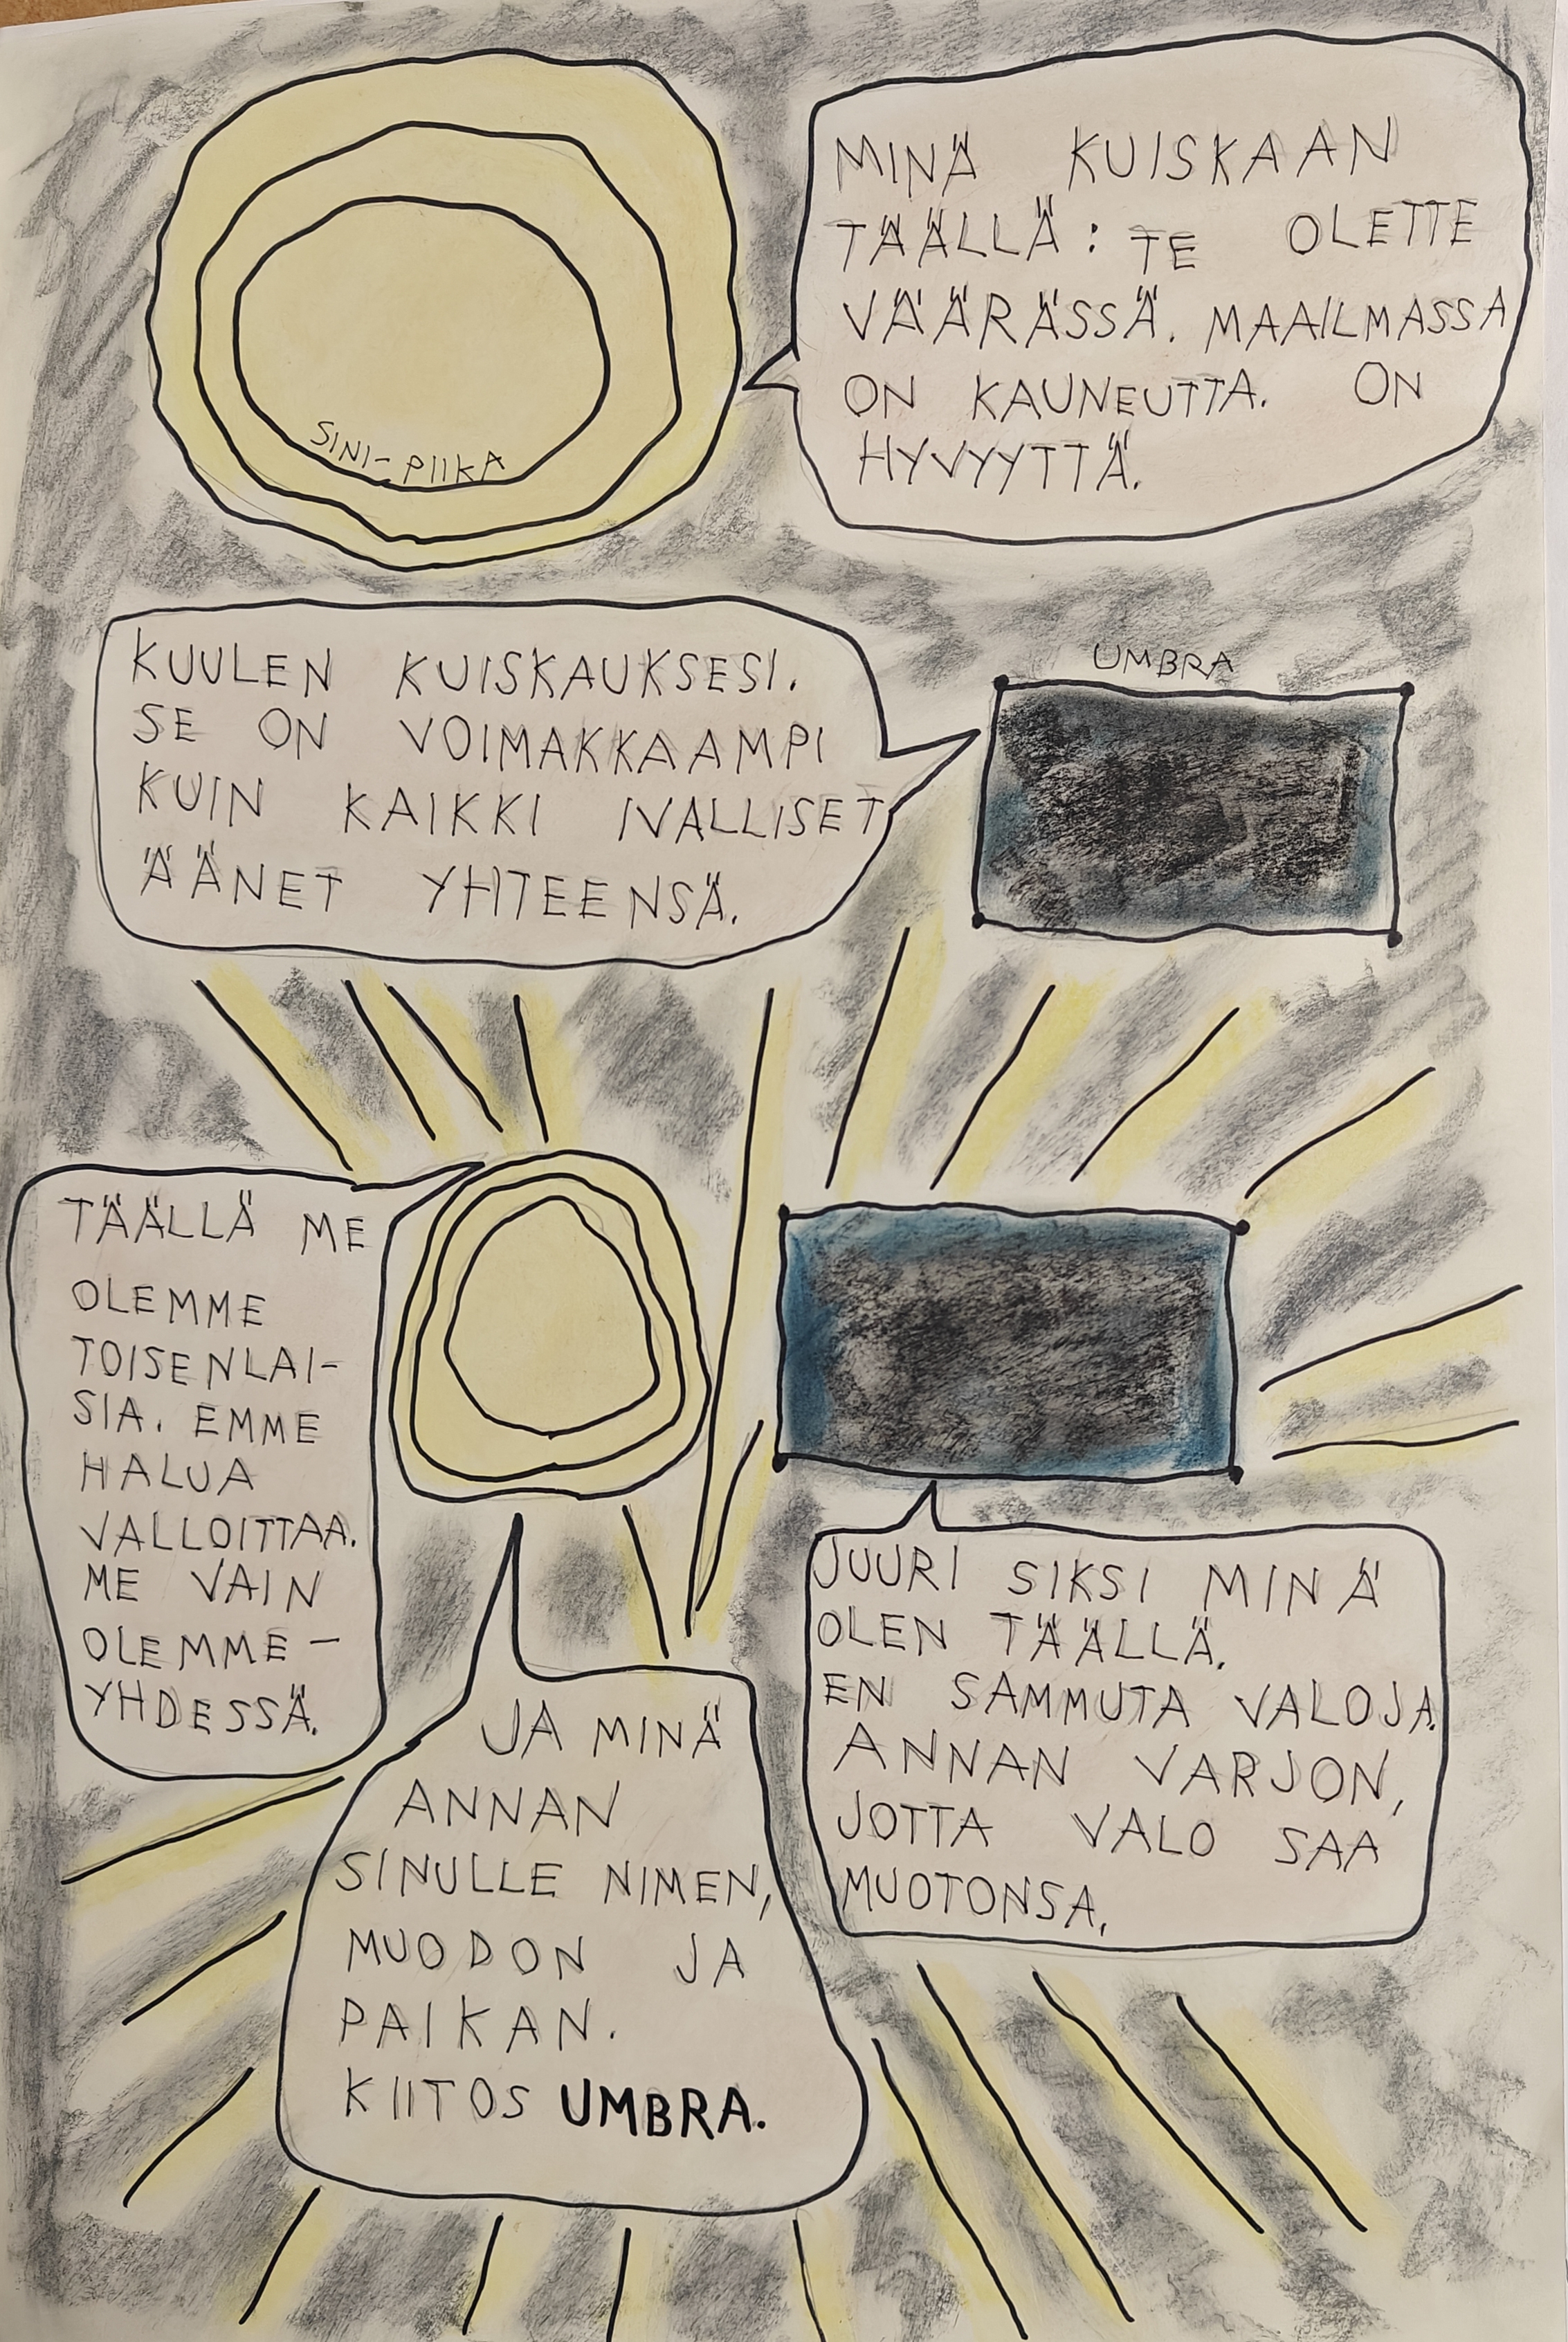 MINÄ KUISKAAN
TÄÄLLÄ: TE OLETTE
VÄÄRÄSSÄ. MAAILMASSA
ON KAUNEUTTA. ON
HYVYYTTÄ.
SINI-PIIKA
UMBRA
KUULEN KUISKAUKSESI.
SE ON VOIMAKKAAMPI
KUIN KAIKKI IVALLISET
ÄÄNET YHTEENSÄ.
TÄÄLLÄ ME
OLEMME
TOISENLAI-
SIA. EMME
HALUA
VALLOITTAA.
ME VAIN
OLEMME -
YHDESSÄ.
JUURI SIKSI MINÄ
OLEN TÄÄLLÄ.
EN SAMMUTA VALOJA.
ANNAN VARJON,
JOTTA VALO SAA
MUOTONSA.
JA MINÄ
ANNAN
SINULLE NIMEN,
MUODON JA
PAIKAN.
KIITOS UMBRA.